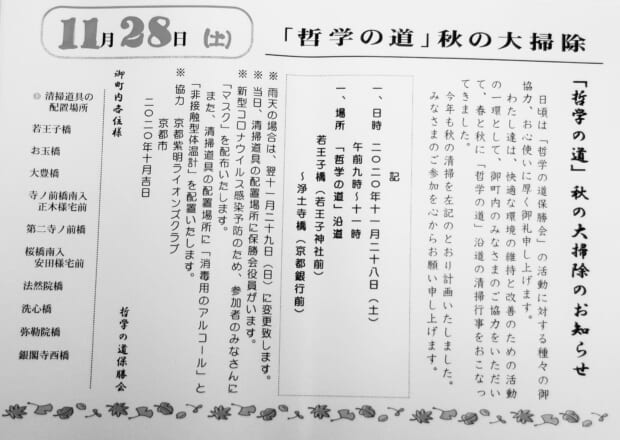 11月28日(土)
「哲学の道」秋の大掃除
「哲学の道」秋の大掃除のお知らせ
日頃は「哲学の道保勝会」の活動に対する種々の御
協力、お心使いに厚く御礼申し上げます。
わたし達は、快適な環境の維持と改善のための活動
の一環として、御町内のみなさまのご協力をいただい
て、春と秋に「哲学の道」沿道の清掃行事をおこなっ
てきました。
今年も秋の清掃を左記のとおり計画いたしました。
みなさまのご参加を心からお願い申し上げます。
記
一、日時 二〇二〇年十一月二十八日(土)
午前九時~十一時
一、場所 「哲学の道」沿道
若王子橋(若王子神社前)
~浄土寺橋(京都銀行前)
※ 雨天の場合は、翌十一月二十九日(日)に変更致します。
※ 当日、清掃道具の配置場所に保勝会役員がいます。
※ 新型コロナウイルス感染予防のため、参加者のみなさんに
「マスク」を配布いたします。
また、清掃道具の配置場所に「消毒用のアルコール」と
「非接触型体温計」を配置いたします。
※ 協力 京都紫明ライオンズクラブ
京都市
二〇二〇年十月吉日
哲学の道保勝会
御町内各位様
◎ 清掃道具の
配置場所
若王子橋
お玉橋
大豊橋
寺ノ前橋南入
正木様宅前
第二寺ノ前橋
桜橋南入
安田様宅前
法然院橋
洗心橋
弥勒院橋
銀閣寺西橋